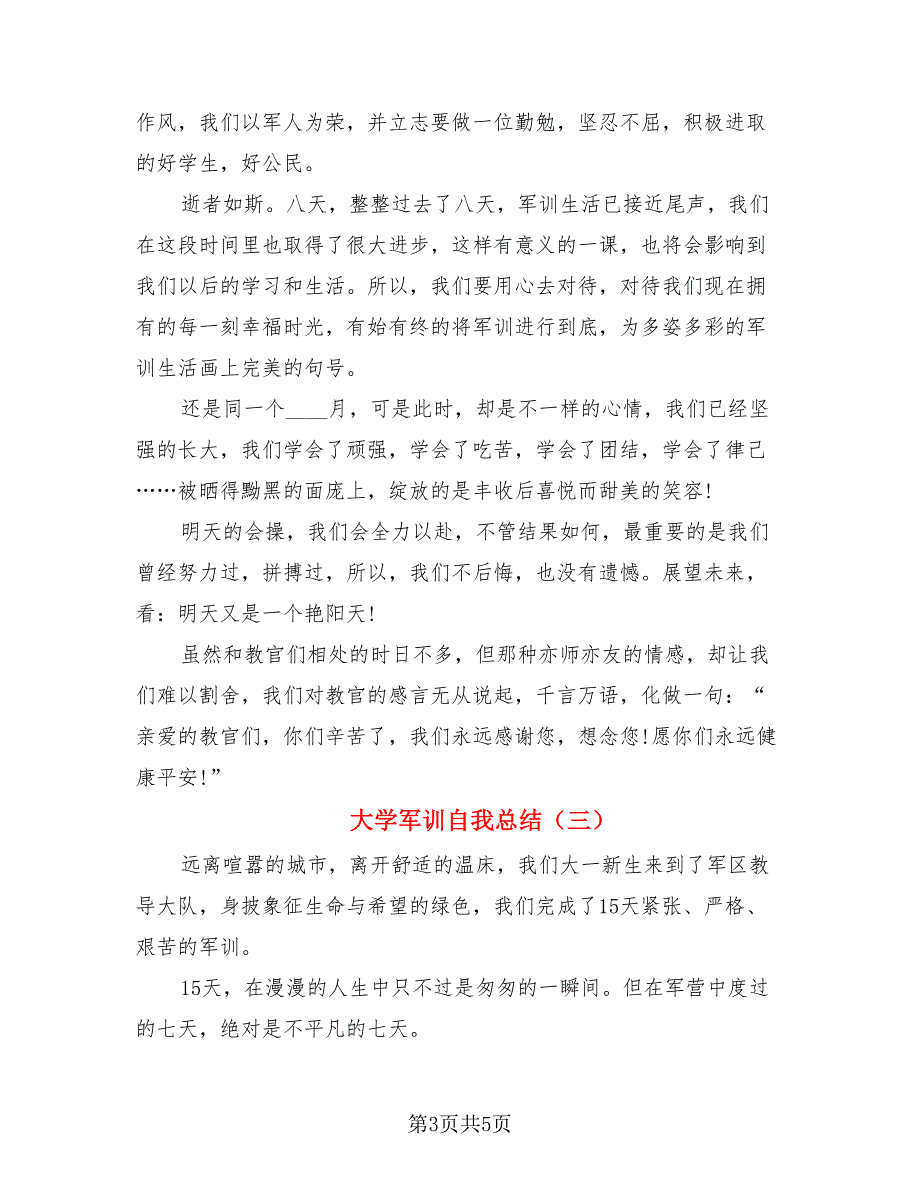 作风，我们以军人为荣，并立志要做一位勤勉，坚忍不屈，积极进取
的好学生，好公民。
逝者如斯。八天，整整过去了八天，军训生活已接近尾声，我们
在这段时间里也取得了很大进步，这样有意义的一课，也将会影响到
我们以后的学习和生活。所以，我们要用心去对待，对待我们现在拥
有的每一刻幸福时光，有始有终的将军训进行到底，为多姿多彩的军
训生活画上完美的句号。
还是同一个____月，可是此时，却是不一样的心情，我们已经坚
强的长大，我们学会了顽强，学会了吃苦，学会了团结，学会了律己
……被晒得黝黑的面庞上，绽放的是丰收后喜悦而甜美的笑容!
明天的会操，我们会全力以赴，不管结果如何，最重要的是我们
曾经努力过，拼搏过，所以，我们不后悔，也没有遗憾。展望未来，
看：明天又是一个艳阳天!
虽然和教官们相处的时日不多，但那种亦师亦友的情感，却让我
们难以割舍，我们对教官的感言无从说起，千言万语，化做一句：“
亲爱的教官们，你们辛苦了，我们永远感谢您，想念您!愿你们永远健
康平安!”
大学军训自我总结（三）
远离喧嚣的城市，离开舒适的温床，我们大一新生来到了军区教
导大队，身披象征生命与希望的绿色，我们完成了15天紧张、严格、
艰苦的军训。
15天，在漫漫的人生中只不过是匆匆的一瞬间。但在军营中度过
的七天，绝对是不平凡的七天。
第3页共5页